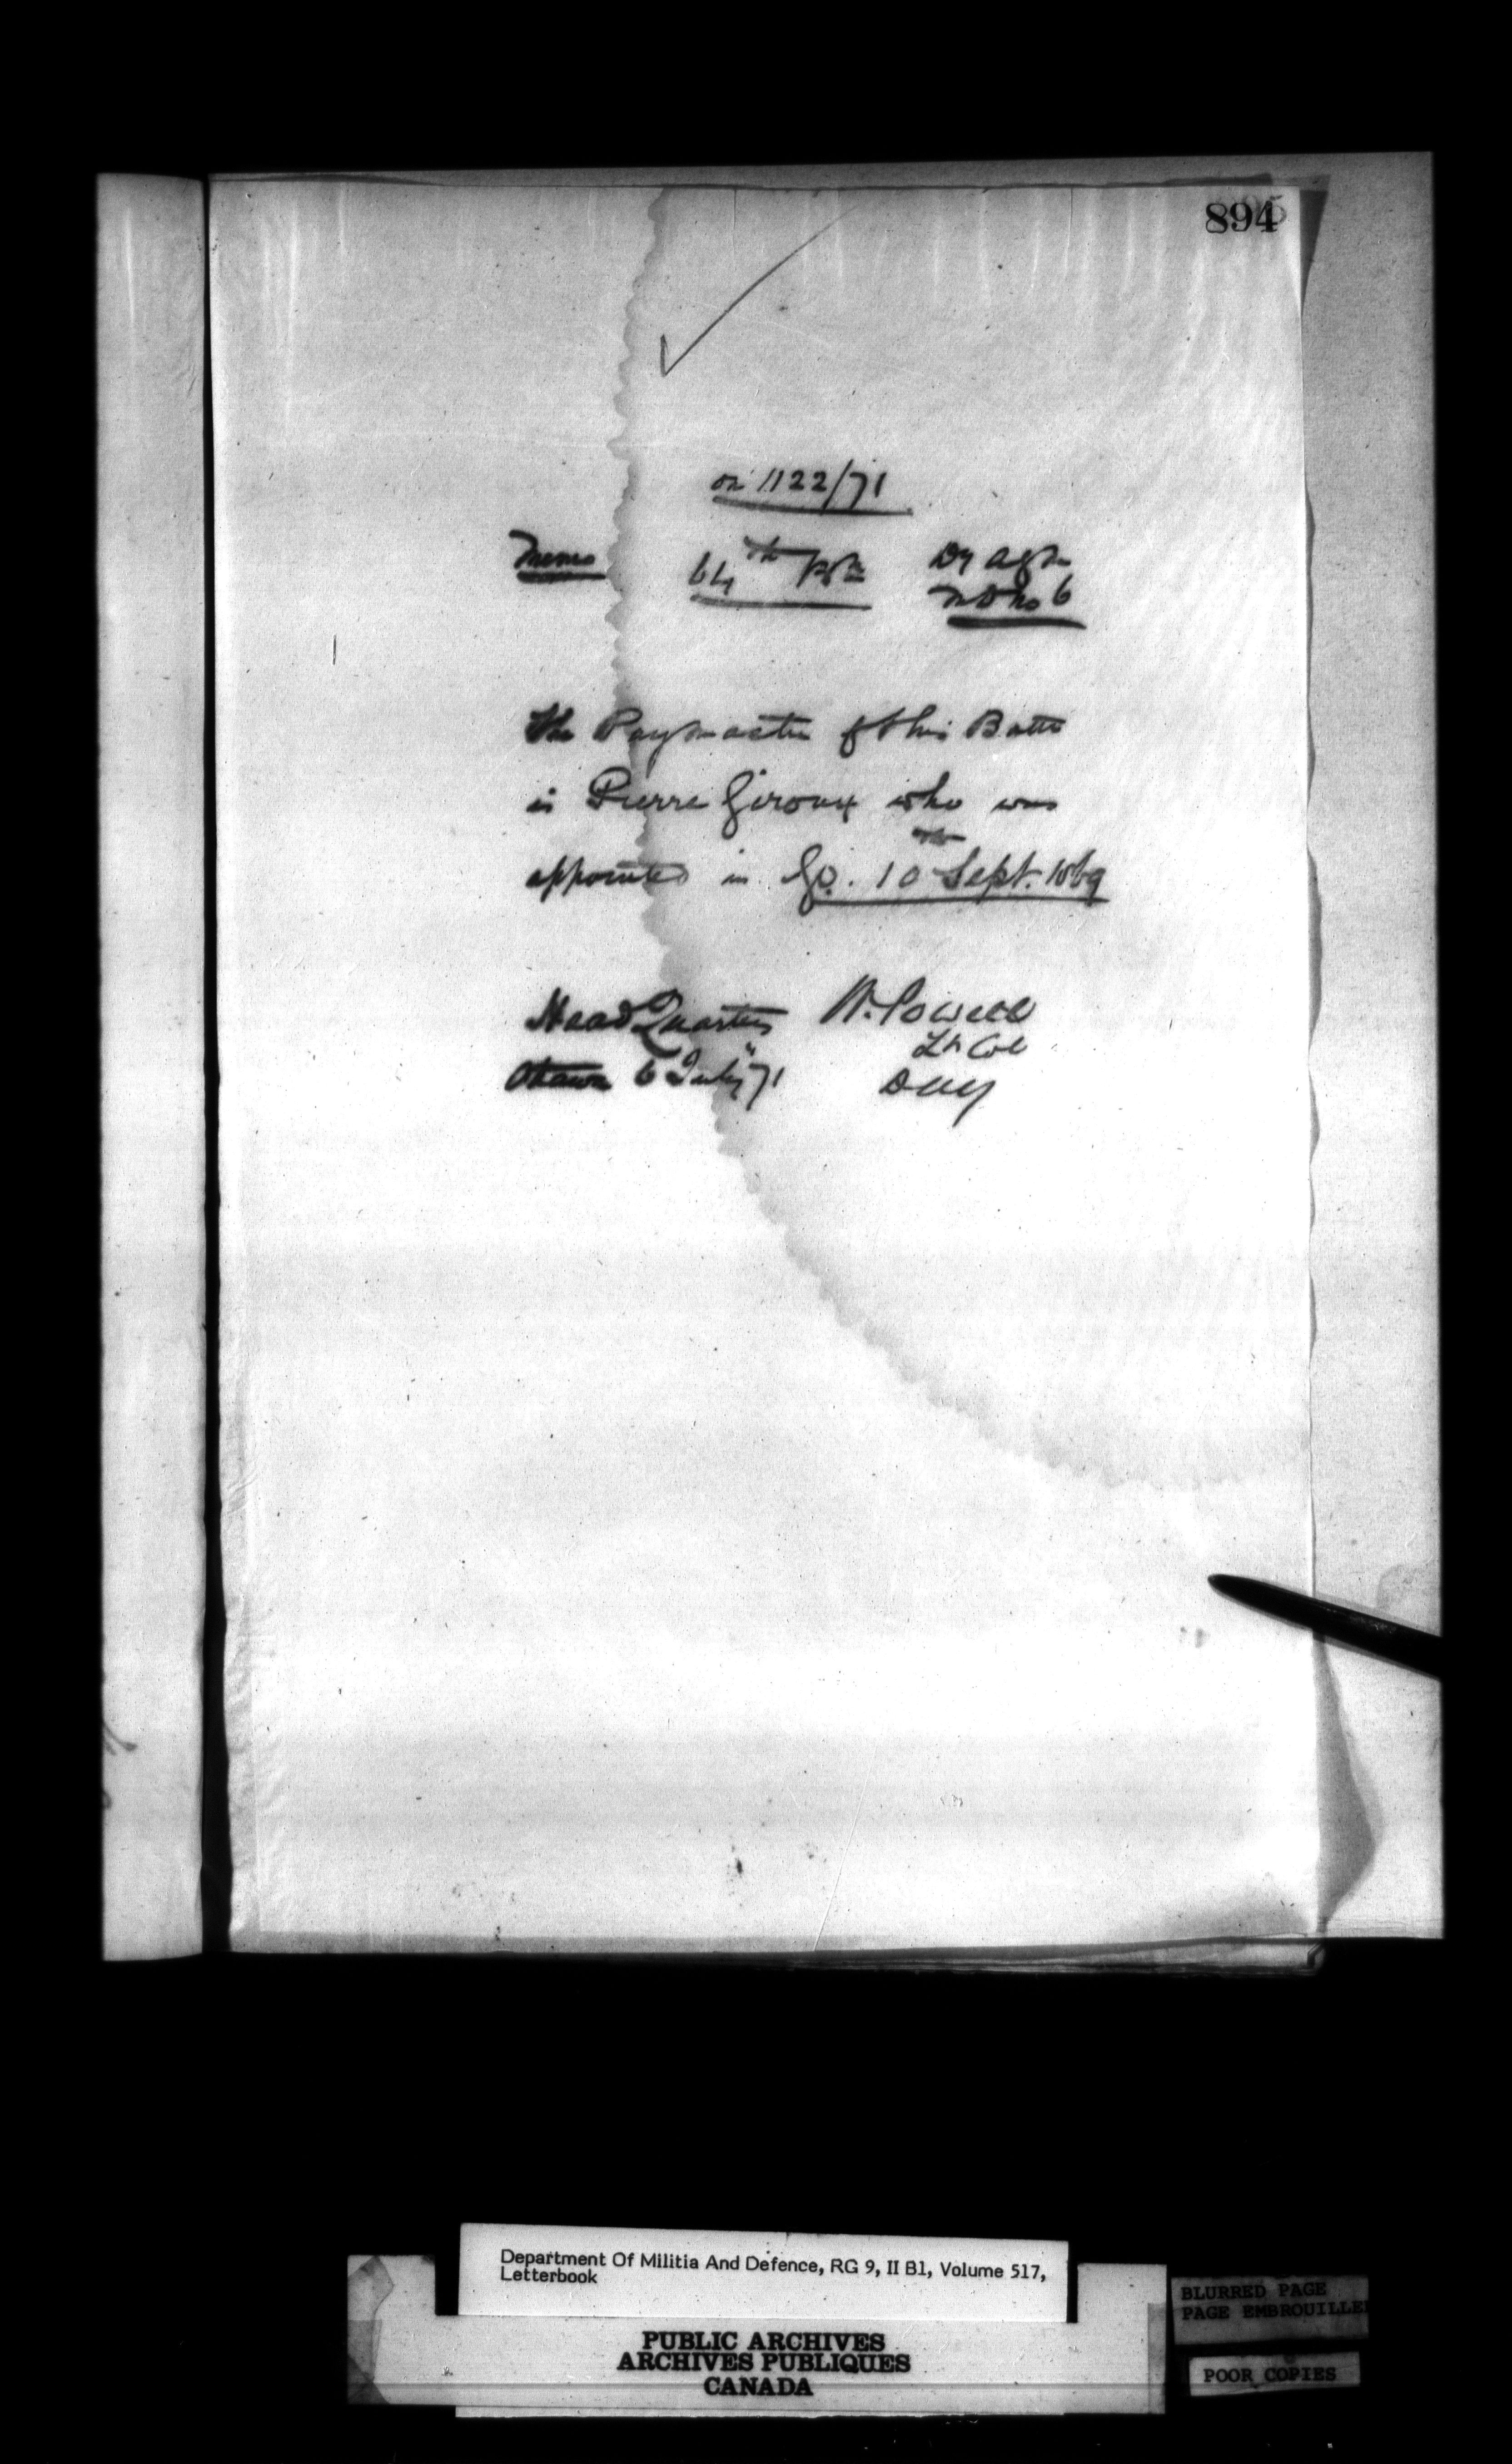 894
on 1122/71
Memo 64th Bn Dy AGM
M D No 6
The Paymaster of this Battn
is Pierre Giroux who was
appointed in G.O. 10th Sept. 1869
Head Quarters W. Powell
Ottawa 6 July "71 Lt Col
DAG
Department Of Militia And Defence, RG 9, II B1, Volume 517,
Letterbook
PUBLIC ARCHIVES
ARCHIVES PUBLIQUES
CANADA
BLURRED PAGE
PAGE EMBROUILLEE
POOR COPIES